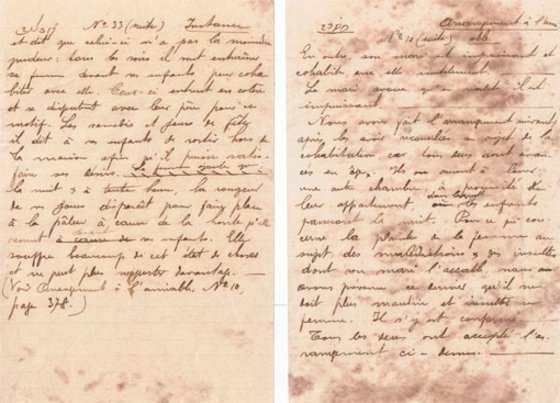 No 33 (suite) Instances
et dit que celui-ci n'a pas la moindre
pudeur: tous les soirs il veut entraîner
sa femme devant ses enfants pour coha-
biter avec elle. Ceux-ci entrent en colère
et se disputent avec leur père pour ce
motif. Les samedis et jours de fête
il dit à ses enfants de sortir hors de
la maison afin qu'il puisse satis-
faire ses désirs.
la nuit & à toute heure, la rougeur
de ses joues disparaît pour faire place
à la pâleur à cause de la honte qu'elle
ressent à cause de ses enfants. Elle
souffre beaucoup de cet état de choses
et ne peut plus supporter davantage.
(Voir Arrangement à l'amiable, No 10,
page 378.)
Arrangement à l'am
No 10
En outre, son mari est impuissant et
cohabite avec elle inutilement.
Le mari avoue qu'en effet il est
impuissant.
Nous avons fait l'arrangement suivant,
après les avoir réconciliés au sujet de la
cohabitation car tous deux sont avan-
cés en âge: Ils ont à louer
une autre chambre à proximité de
leur appartement, où les enfants
passeront la nuit. Pour ce qui con-
cerne la plainte de la femme au
sujet des malédictions & des insultes
dont son mari l'accable, nous
avons prévenu ce dernier qu'il ne
doit plus maudire et insulter sa
femme. Il s'y est conformé.
Tous les deux ont accepté l'ar-
rangement ci-dessus.